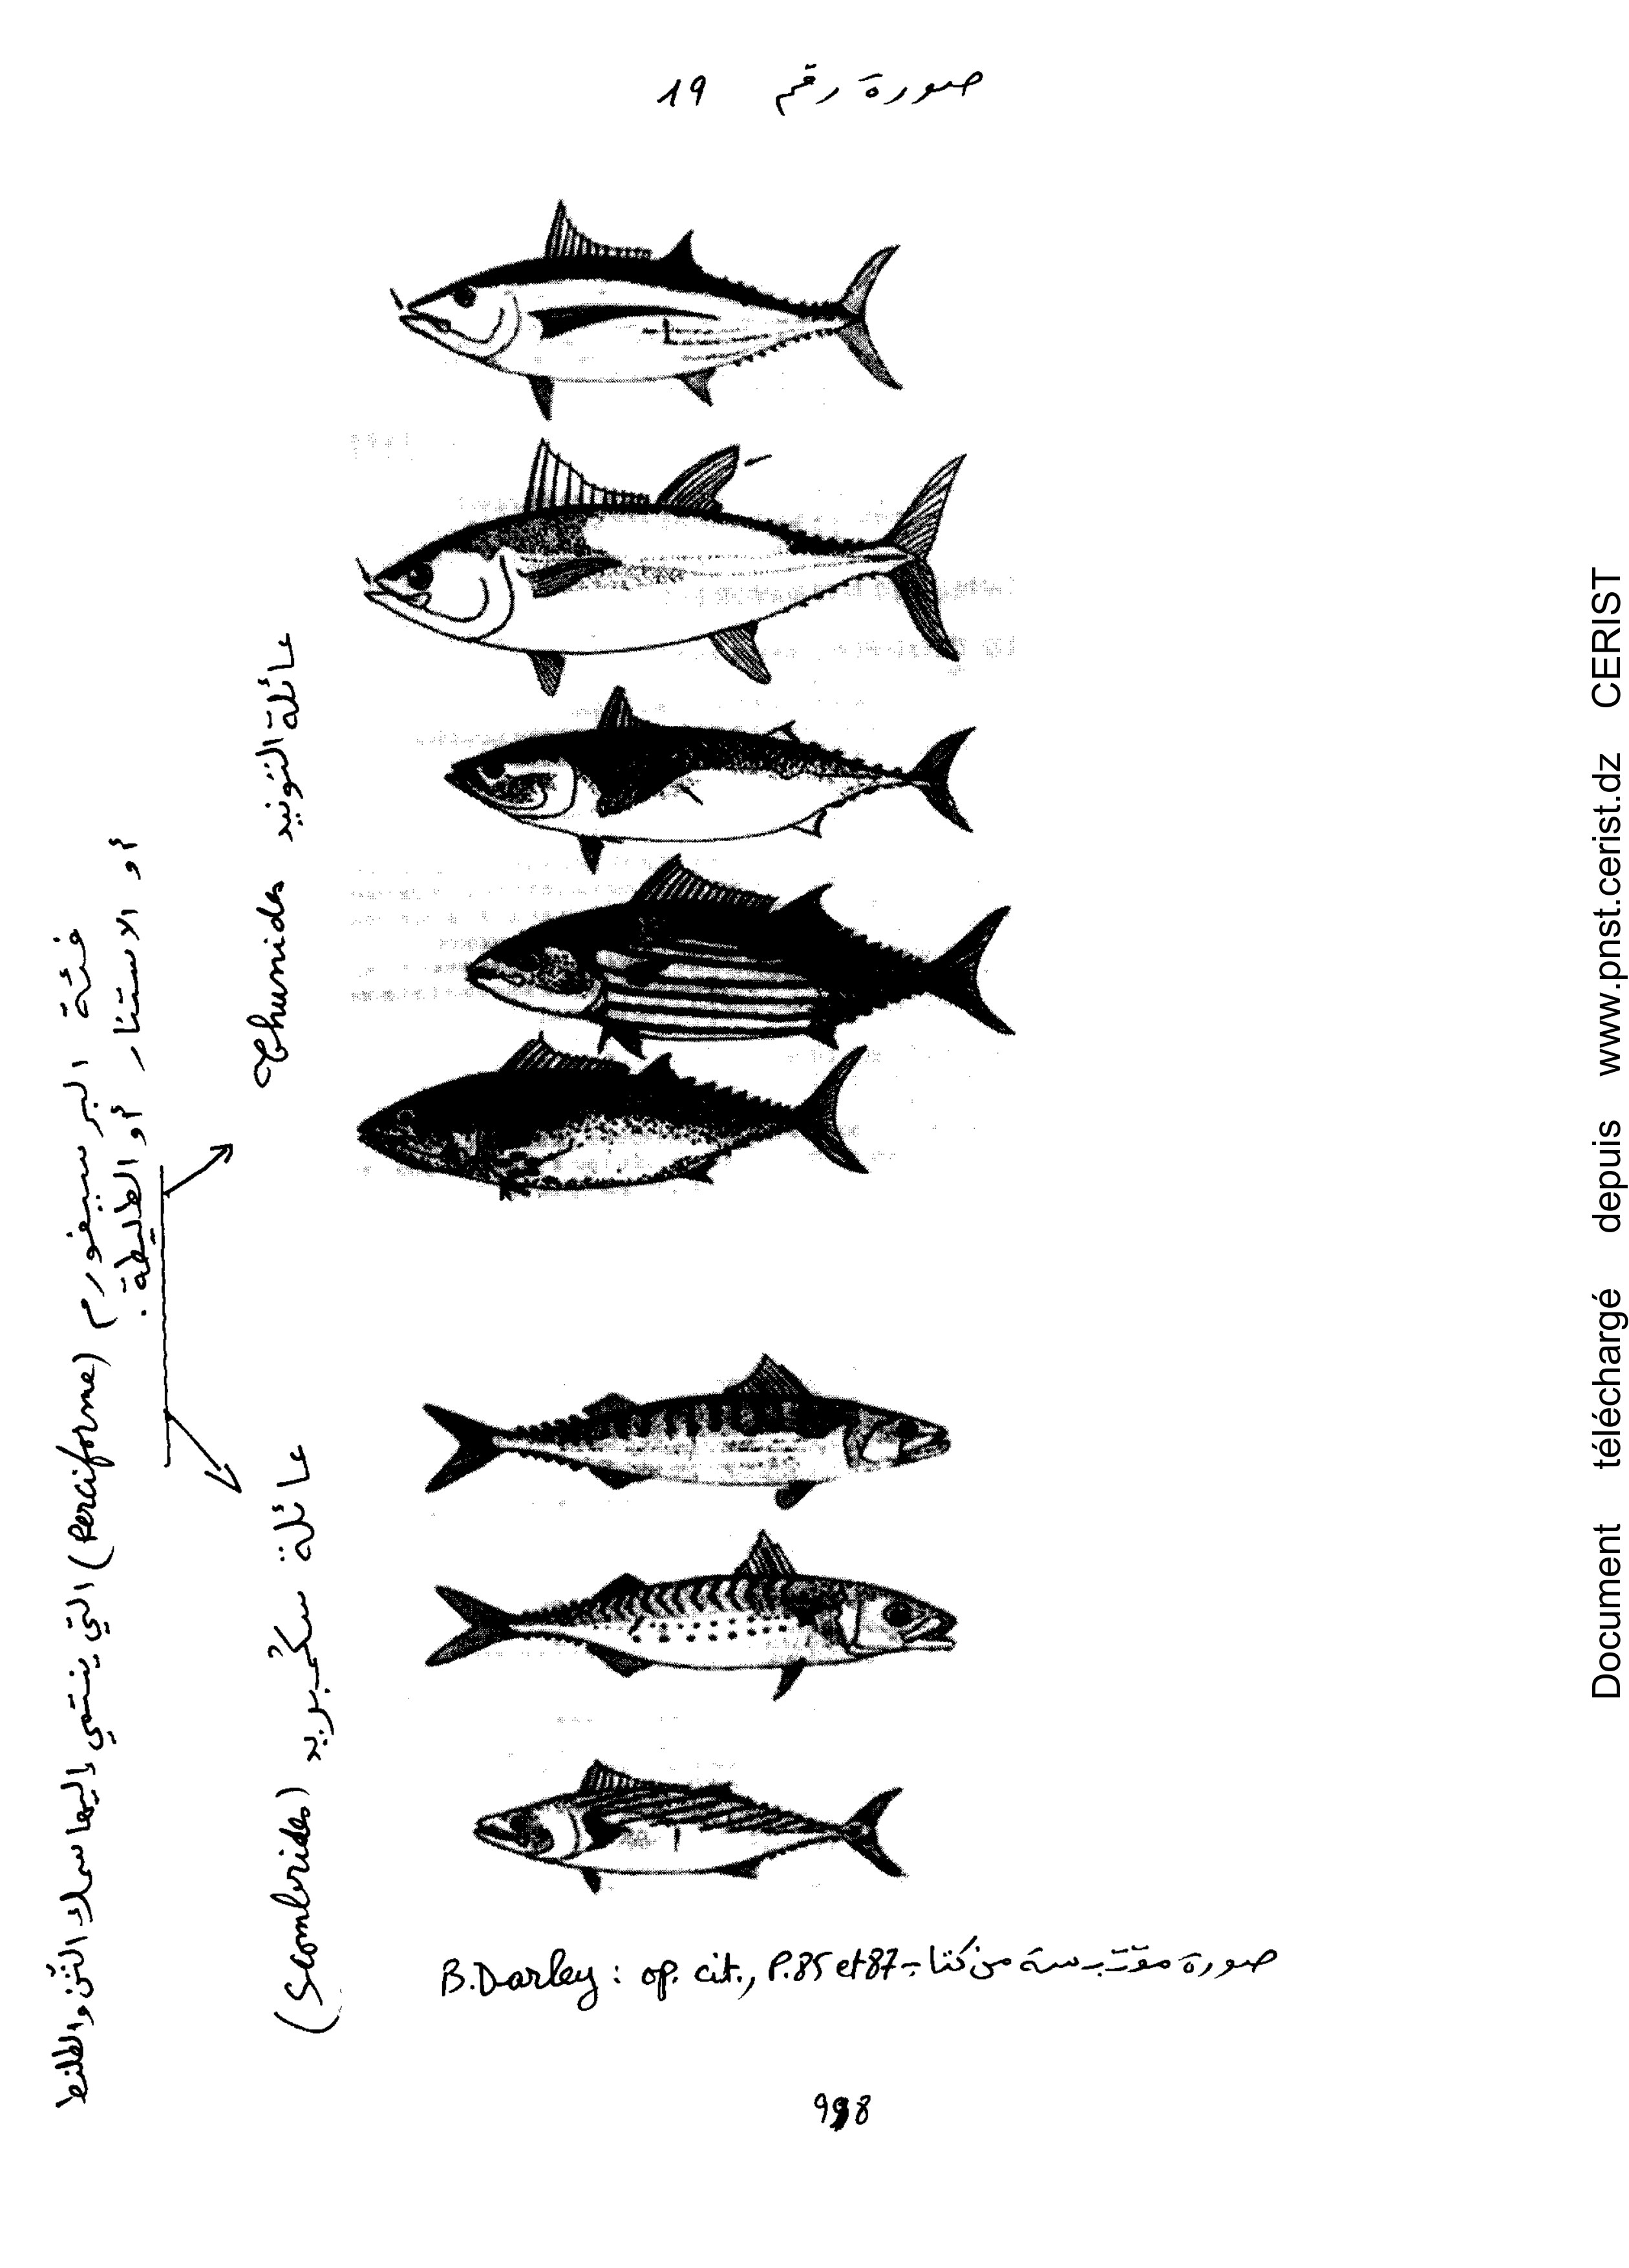 صورة رقم 19
فئة البرسيفورم (Perciforme) التي ينتمي إليها سمك التن والطلنط
أو الاستنار أو الطليطة.
عائلة التونيد Thunides
عائلة سكمبريد (Scombrides)
صورة مقتبسة من كتاب B.Darley : op. cit., P.85 et 87
Document téléchargé depuis www.pnst.cerist.dz CERIST